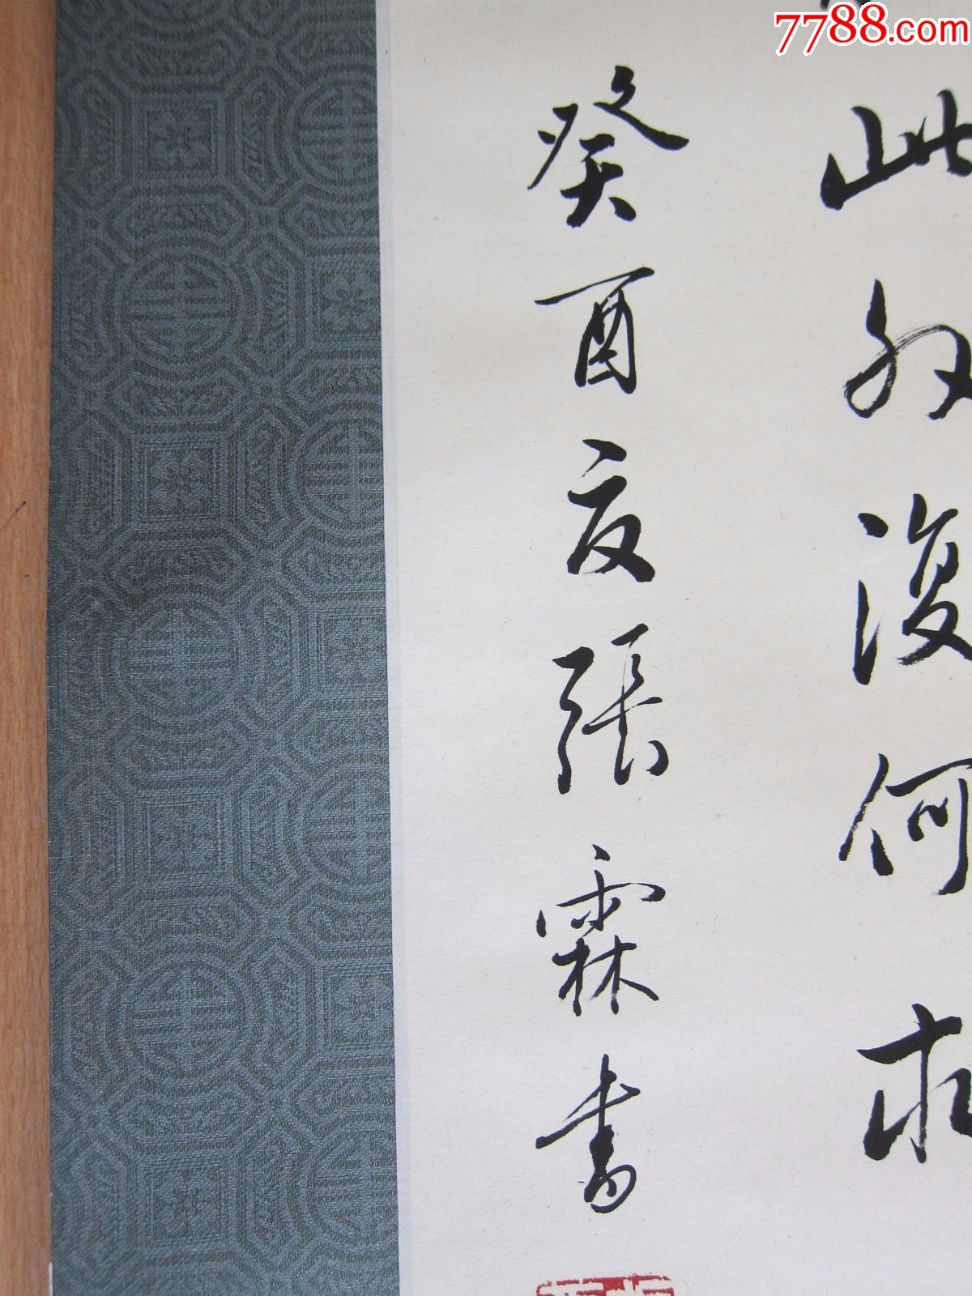 7788.com
此外復何求
癸酉夏張霖書